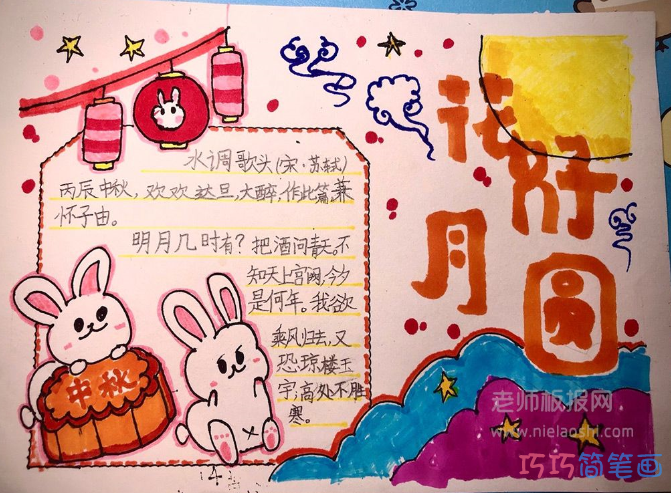 花好
月圆
水调歌头(宋·苏轼)
丙辰中秋,欢欢达旦,大醉,作此篇,兼
怀子由。
明月几时有?把酒问青天。不
知天上宫阙,今夕
是何年。我欲
乘风归去,又
恐琼楼玉
宇,高处不胜
寒。
中秋
老师板报网
www.nielaoshi.com
巧巧简笔画